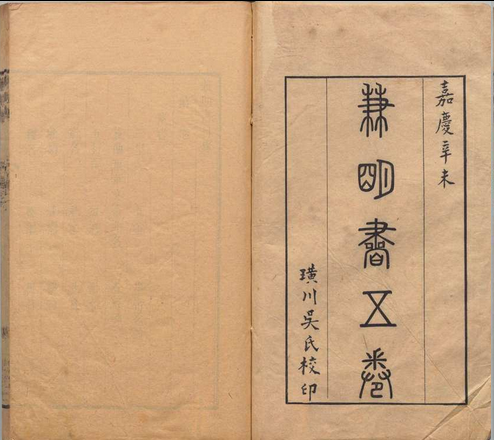 嘉慶辛未
兼明書五卷
璜川吳氏校印